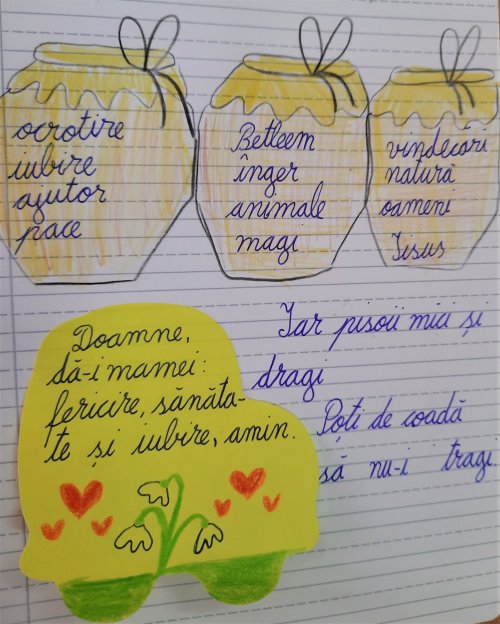 ocrotire
iubire
ajutor
pace
Betleem
înger
animale
magi
vindecări
natură
oameni
Iisus
Doamne,
dă-i mamei:
fericire, sănăta-
te și iubire, amin.
Iar pisoii mici și
dragi
Poți de coadă
să nu-i tragi